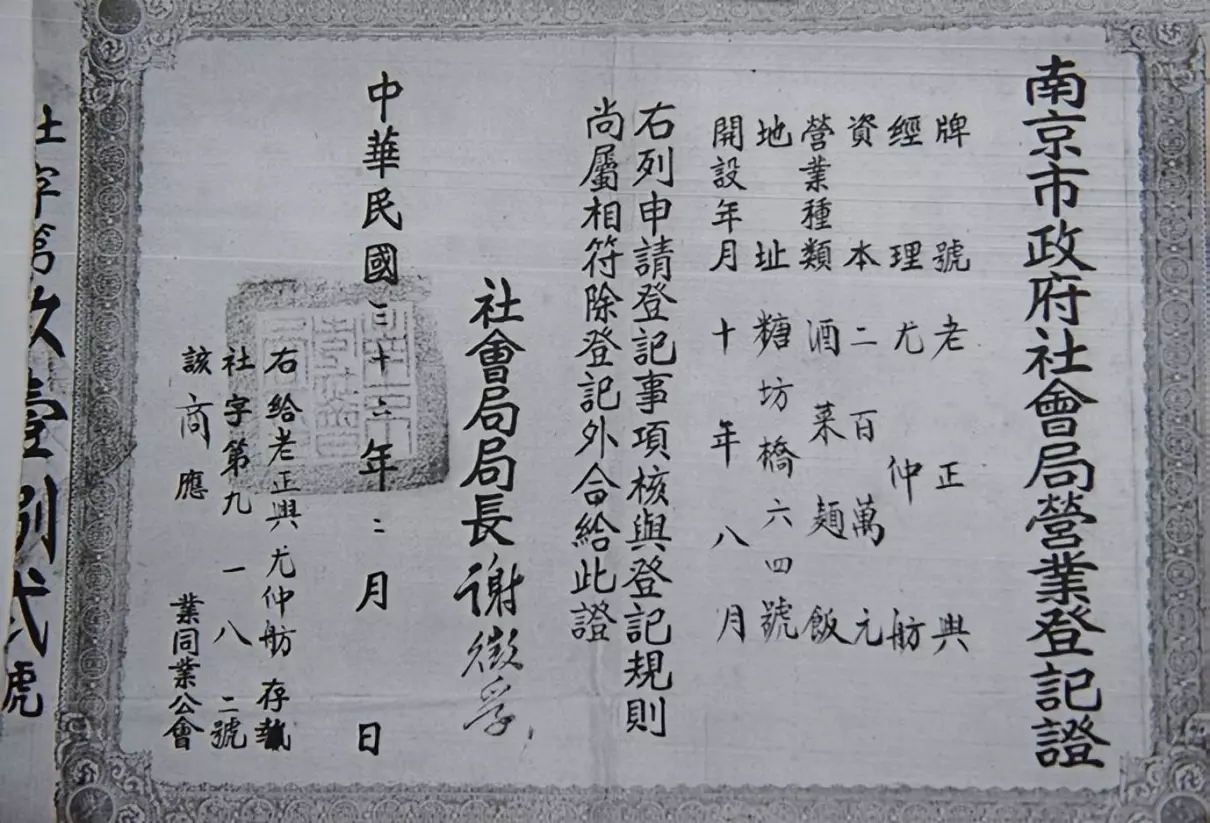 南京市政府社會局營業登記證
牌號 老正興
經理 尤仲舫
資本 二百萬元
營業種類 酒菜麵飯
地址 糖坊橋六四號
開設年月 十年八月
右列申請登記事項核與登記規則
尚屬相符除登記外合給此證
社會局局長謝徵孚
中華民國三十六年二月 日
右給老正興尤仲舫存執
社字第九一八二號
該商應 業同業公會
社字第玖壹捌弍號